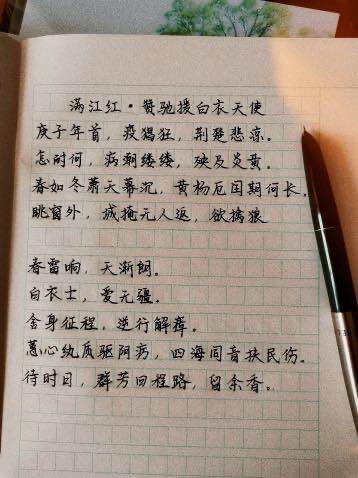 满江红·赞驰援白衣天使
庚子年首，疫猖狂，荆楚悲凉。
怎耐何，病潮缕缕，殃及炎黄。
春如冬萧天幕沉，黄杨厄闰期何长。
眺窗外，城掩无人返，欲擒狼
春雷响，天渐朗。
白衣士，爱无疆。
舍身征程，逆行解痒。
蕙心纨质驱阴疠，四海同音扶民伤。
待时日，群芳回程路，留余香。